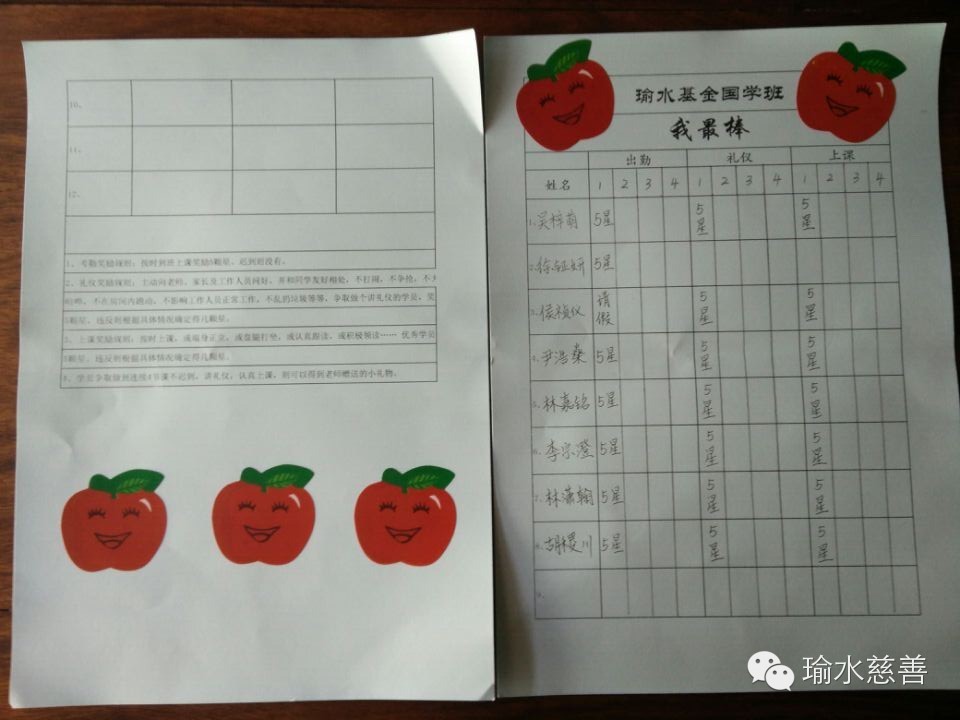 10、
11、
12、
1、考勤奖励规则：按时到班上课奖励5颗星、迟到则没有。
2、礼仪奖励规则：主动向老师、家长及工作人员问好、并和同学友好相处，不打闹、不争抢，不大
响哗、不在房间内跑动、不影响工作人员正常工作，不乱扔垃圾等等，争取做个讲礼仪的学员，奖
5颗星、违反则根据具体情况确定得几颗星。
3、上课奖励规则：按时上课，或端身正立、或盘腿打坐、或认真跟读、或积极领读…… 优秀学员
5颗星、违反则根据具体情况确定得几颗星。
8、学员争取做到连续4节课不迟到，讲礼仪，认真上课，则可以得到老师赠送的小礼物。
瑜水基金国学班
我最棒
出勤 礼仪 上课
姓名 1 2 3 4 1 2 3 4 1 2 3 4
1、吴梓萌 5星 5星 5星
2、徐钰妍 5星
3、侯祯仪 请假 5星 5星
4、尹浩桑 5星 5星 5星
5、林嘉铭 5星 5星 5星
6、李宗澄 5星 5星 5星
7、林潇翰 5星 5星 5星
8、胡稷川 5星 5星 5星
9、
瑜水慈善